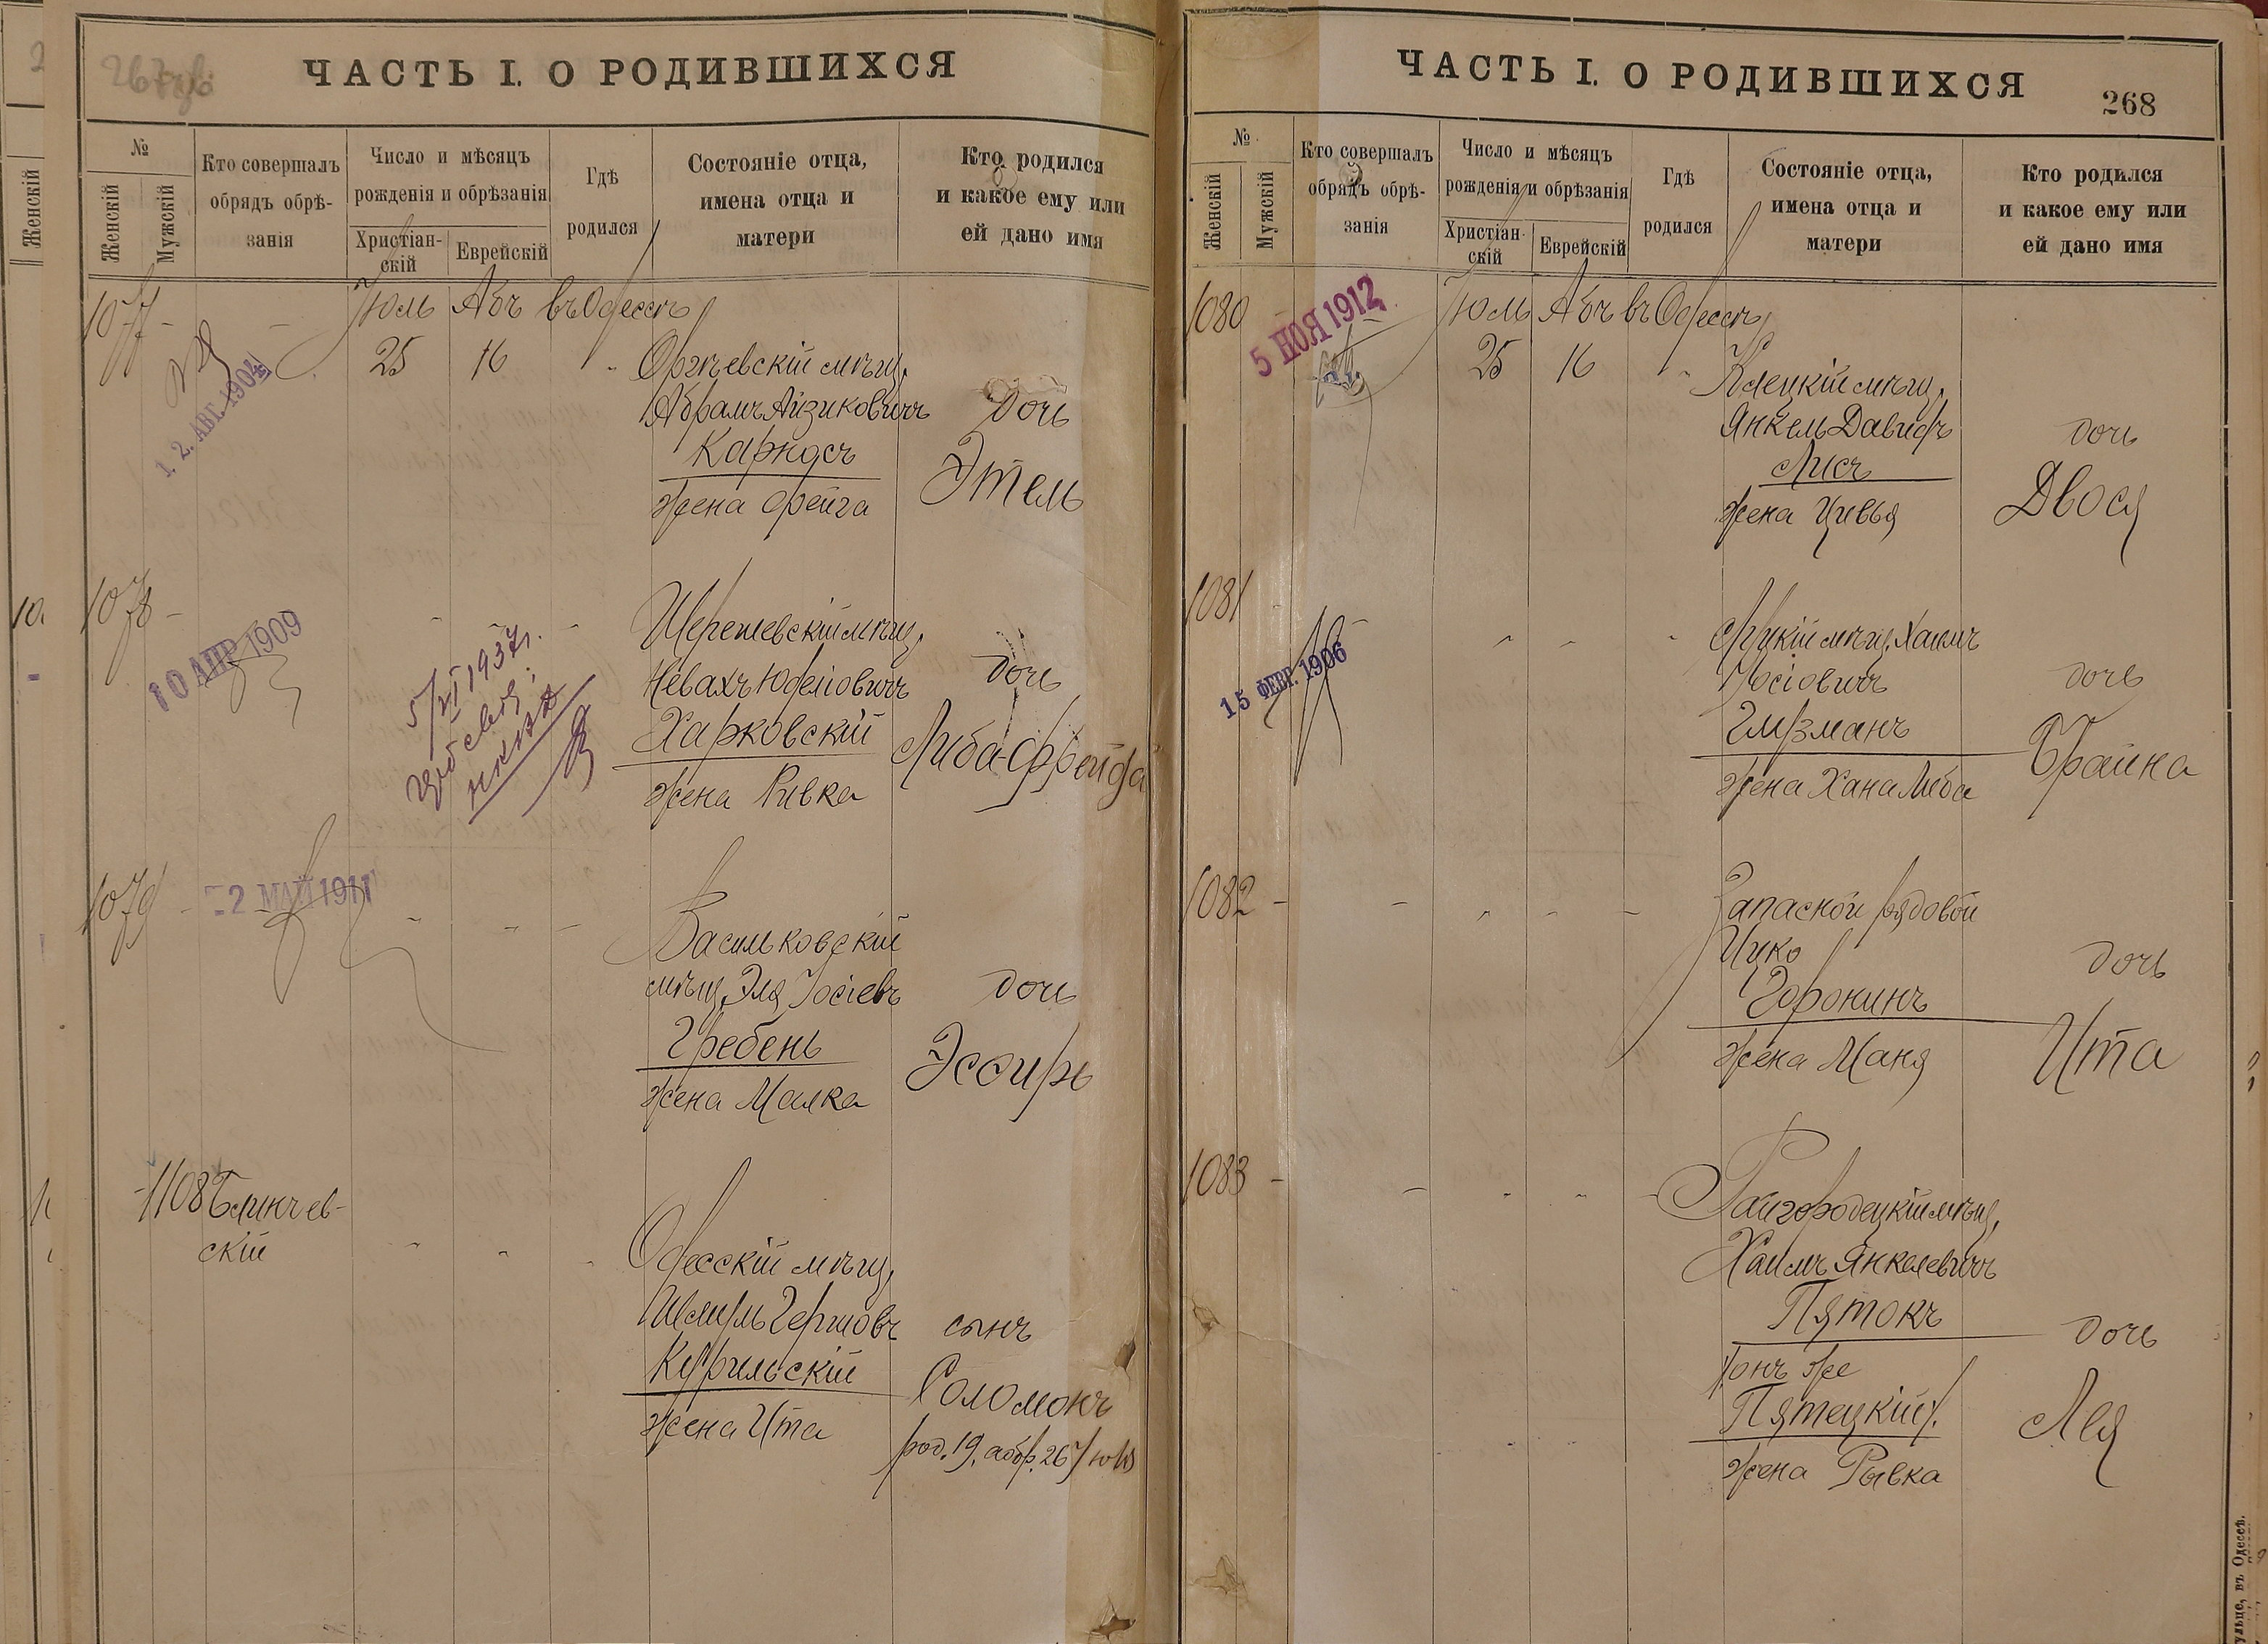 267 об.
ЧАСТЬ I. О РОДИВШИХСЯ
№
Женскій
Мужскій
Кто совершалъ
обрядъ обрѣ-
занія
Число и мѣсяцъ
рожденія и обрѣзанія
Христіан-
скій
Еврейскій
Гдѣ
родился
Состояніе отца,
имена отца и
матери
Кто родился
и какое ему или
ей дано имя
1077 -
Іюль Абъ въ Одессѣ
25 16
12. АВГ. 1904
Оргѣевскій мѣщ.
Абрамъ Айзиковичъ
Карнасъ
жена Фейга
дочь
Этель
1078 -
10 АПР 1909
5/VI 1937г.
Шерешевскій мѣщ.
Невахъ Юделіовичъ
Харковскій
жена Ривка
дочь
Либа-Фрейда
1079 -
-2 МАЙ 1911
Васильковскій
мѣщ. Эля Іосіевъ
Гребень
жена Малка
дочь
Эсѳирь
1108 Блинчев-
скій
Одесскій мѣщ.
Шмуль Гершовъ
Курильскій
жена Ита
сынъ
Соломонъ
род. 19. аобр. 26 Іюля
ЧАСТЬ I. О РОДИВШИХСЯ
268
№
Женскій
Мужскій
Кто совершалъ
обрядъ обрѣ-
занія
Число и мѣсяцъ
рожденія и обрѣзанія
Христіан-
скій
Еврейскій
Гдѣ
родился
Состояніе отца,
имена отца и
матери
Кто родился
и какое ему или
ей дано имя
1080
5 НОЯ 1912
Іюль Абъ въ Одессѣ
25 16
Клецкій мѣщ.
Янкель Давидъ
Лисъ
жена Цивья
дочь
Двося
1081
15 ФЕВР. 1906
Луцкій мѣщ. Хаимъ
Іосіовичъ
Глузманъ
жена Хана Либа
дочь
Брайна
1082 -
Запасной рядовой
Ицко
Горокинъ
жена Маня
дочь
Ита
1083 -
Райгородецкій мѣщ.
Хаимъ Янкелевичъ
Пятокъ
/онъ же
Пятецкій/.
жена Рывка
дочь
Лея
Женскій
ульце, въ Одессѣ.